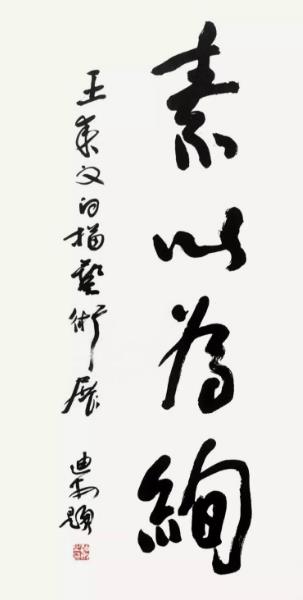 素以為絢
王来文白描藝術展
迪安題